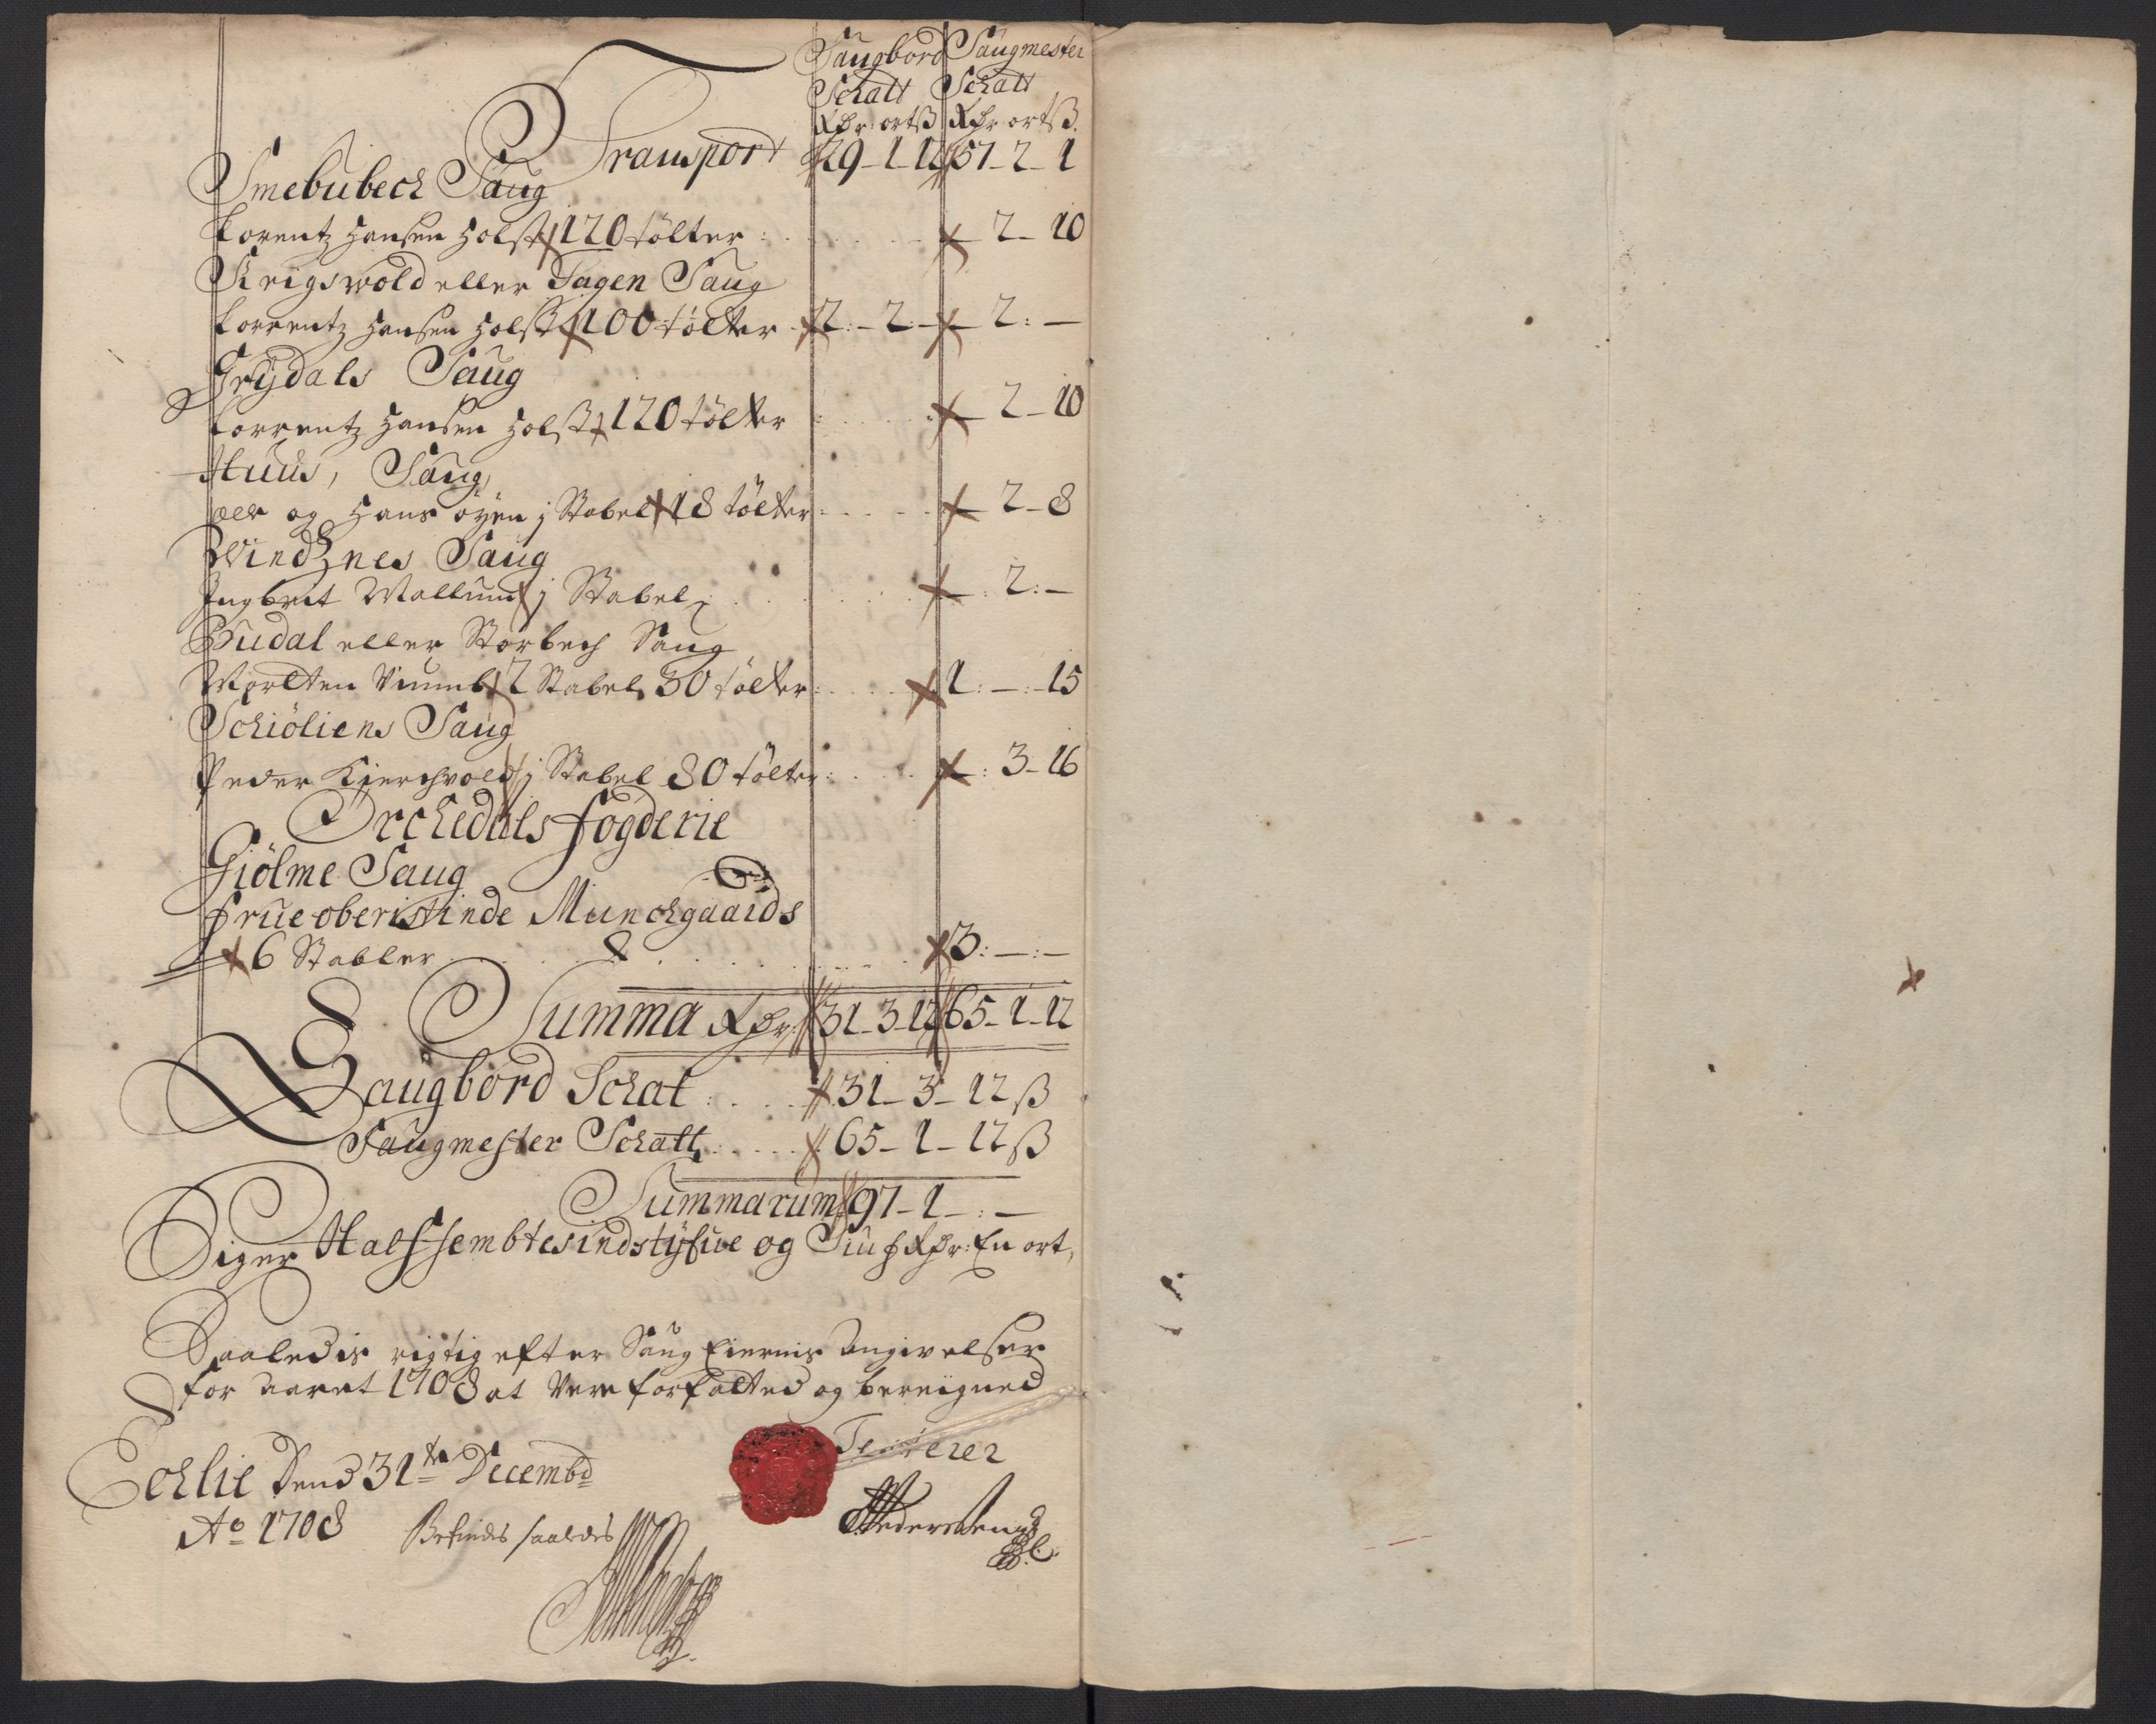 Saugbord Saugmester
Schatt Schatt
Rdr: ort ß Rdr ort ß
Transport 29 - 1 - 12 57 - 2 - 1
Smebubech Saug
Lorentz Hansen Holst 120 tölter : 2 - 10
Kriigswold eller Fagen Saug
Lorrentz Hansen Holst 100 tölter 2: - 2: - 2: -
Grijdals Saug
Lorrentz Hansen Holst 120 tölter 2 - 10
Huus, Saug
og Hans öyen j Stabel 18 tölter 2 - 8
Windznes Saug
Ingbret Wallum j Stabel 2: -
Budal eller Storbech Saug
Morten 2 Stabel 30 tölter 1: - : 15
Schiöliens Saug
Peder Kierchvold j Stabel 80 tölter : 3 - 16
Orchedals fogderie
Giölme Saug
Frue oberstinde Munchgaards
6 Stabler 3: - : -
Summa Rdr 31 - 3 - 12 65 - 1 - 12
Saugbord Schat 31 - 3 - 12 ß
Saugmester Schatt 65 - 1 - 12 ß
Summarum 97 - 1 - : -
Siger Halfsembtesindstyfue og Siuf Rdr: En ort,
Saaledis rigtig efter Saug Eiernis Angivelser
for aaret 1708 at Vere forfalted og beregned
Testerer
Echlie Dend 31te Decembr
Ao 1708 Befindes saaledes